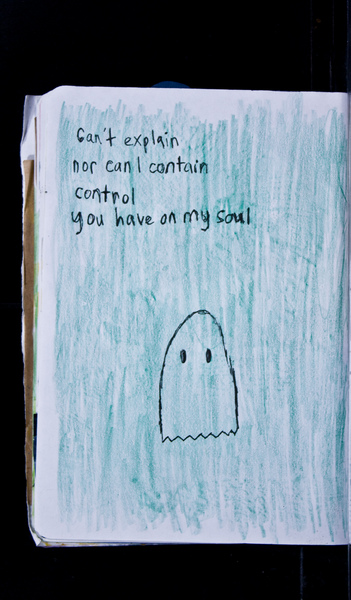 Can't explain
nor can I contain
control
you have on my soul